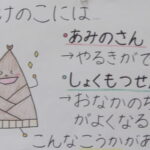 けのこには…
・あみのさん
→やるきがで
・しょくもつせん
→おなかの
がよくなる
こんなこうかがあ